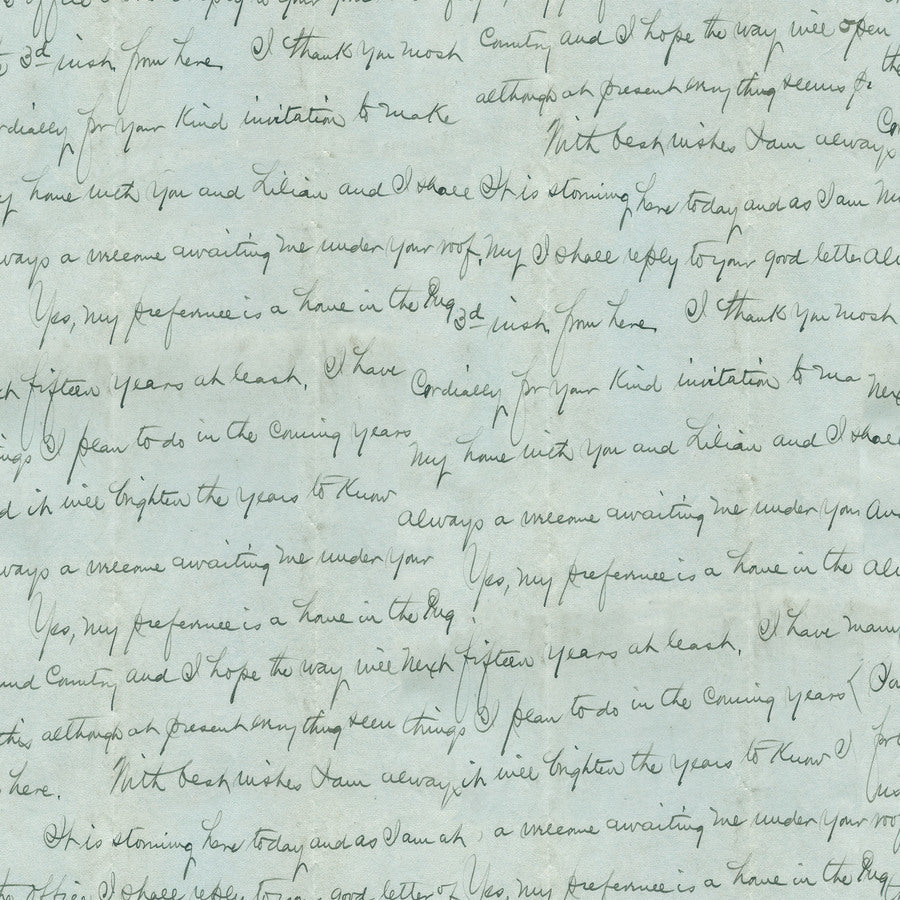 office I shall reply to your
3d inst from here. I thank you most
Cordially for your kind invitation to make
my home with you and Lilian and I shall
always a welcome awaiting me under your roof.
Yes, my preference is a home in the
next fifteen years at least. I have
things I plan to do in the coming years
and it will brighten the years to know
always a welcome awaiting me under your
Yes, my preference is a home in the
and Country and I hope the way will
this although at present anything seem
here. With best wishes I am always
It is storming here today and as I am at
the office I shall reply to your good letter of
Country and I hope the way will open
although at present anything seems
With best wishes I am always
It is storming here today and as I am
my I shall reply to your good letter
3d inst from here. I thank you most
Cordially for your kind invitation to ma
my home with you and Lilian and I shall
always a welcome awaiting me under you
Yes, my preference is a home in the
next fifteen years at least. I have many
things I plan to do in the coming years
it will brighten the years to know I
a welcome awaiting me under your roof
Yes, my preference is a home in the